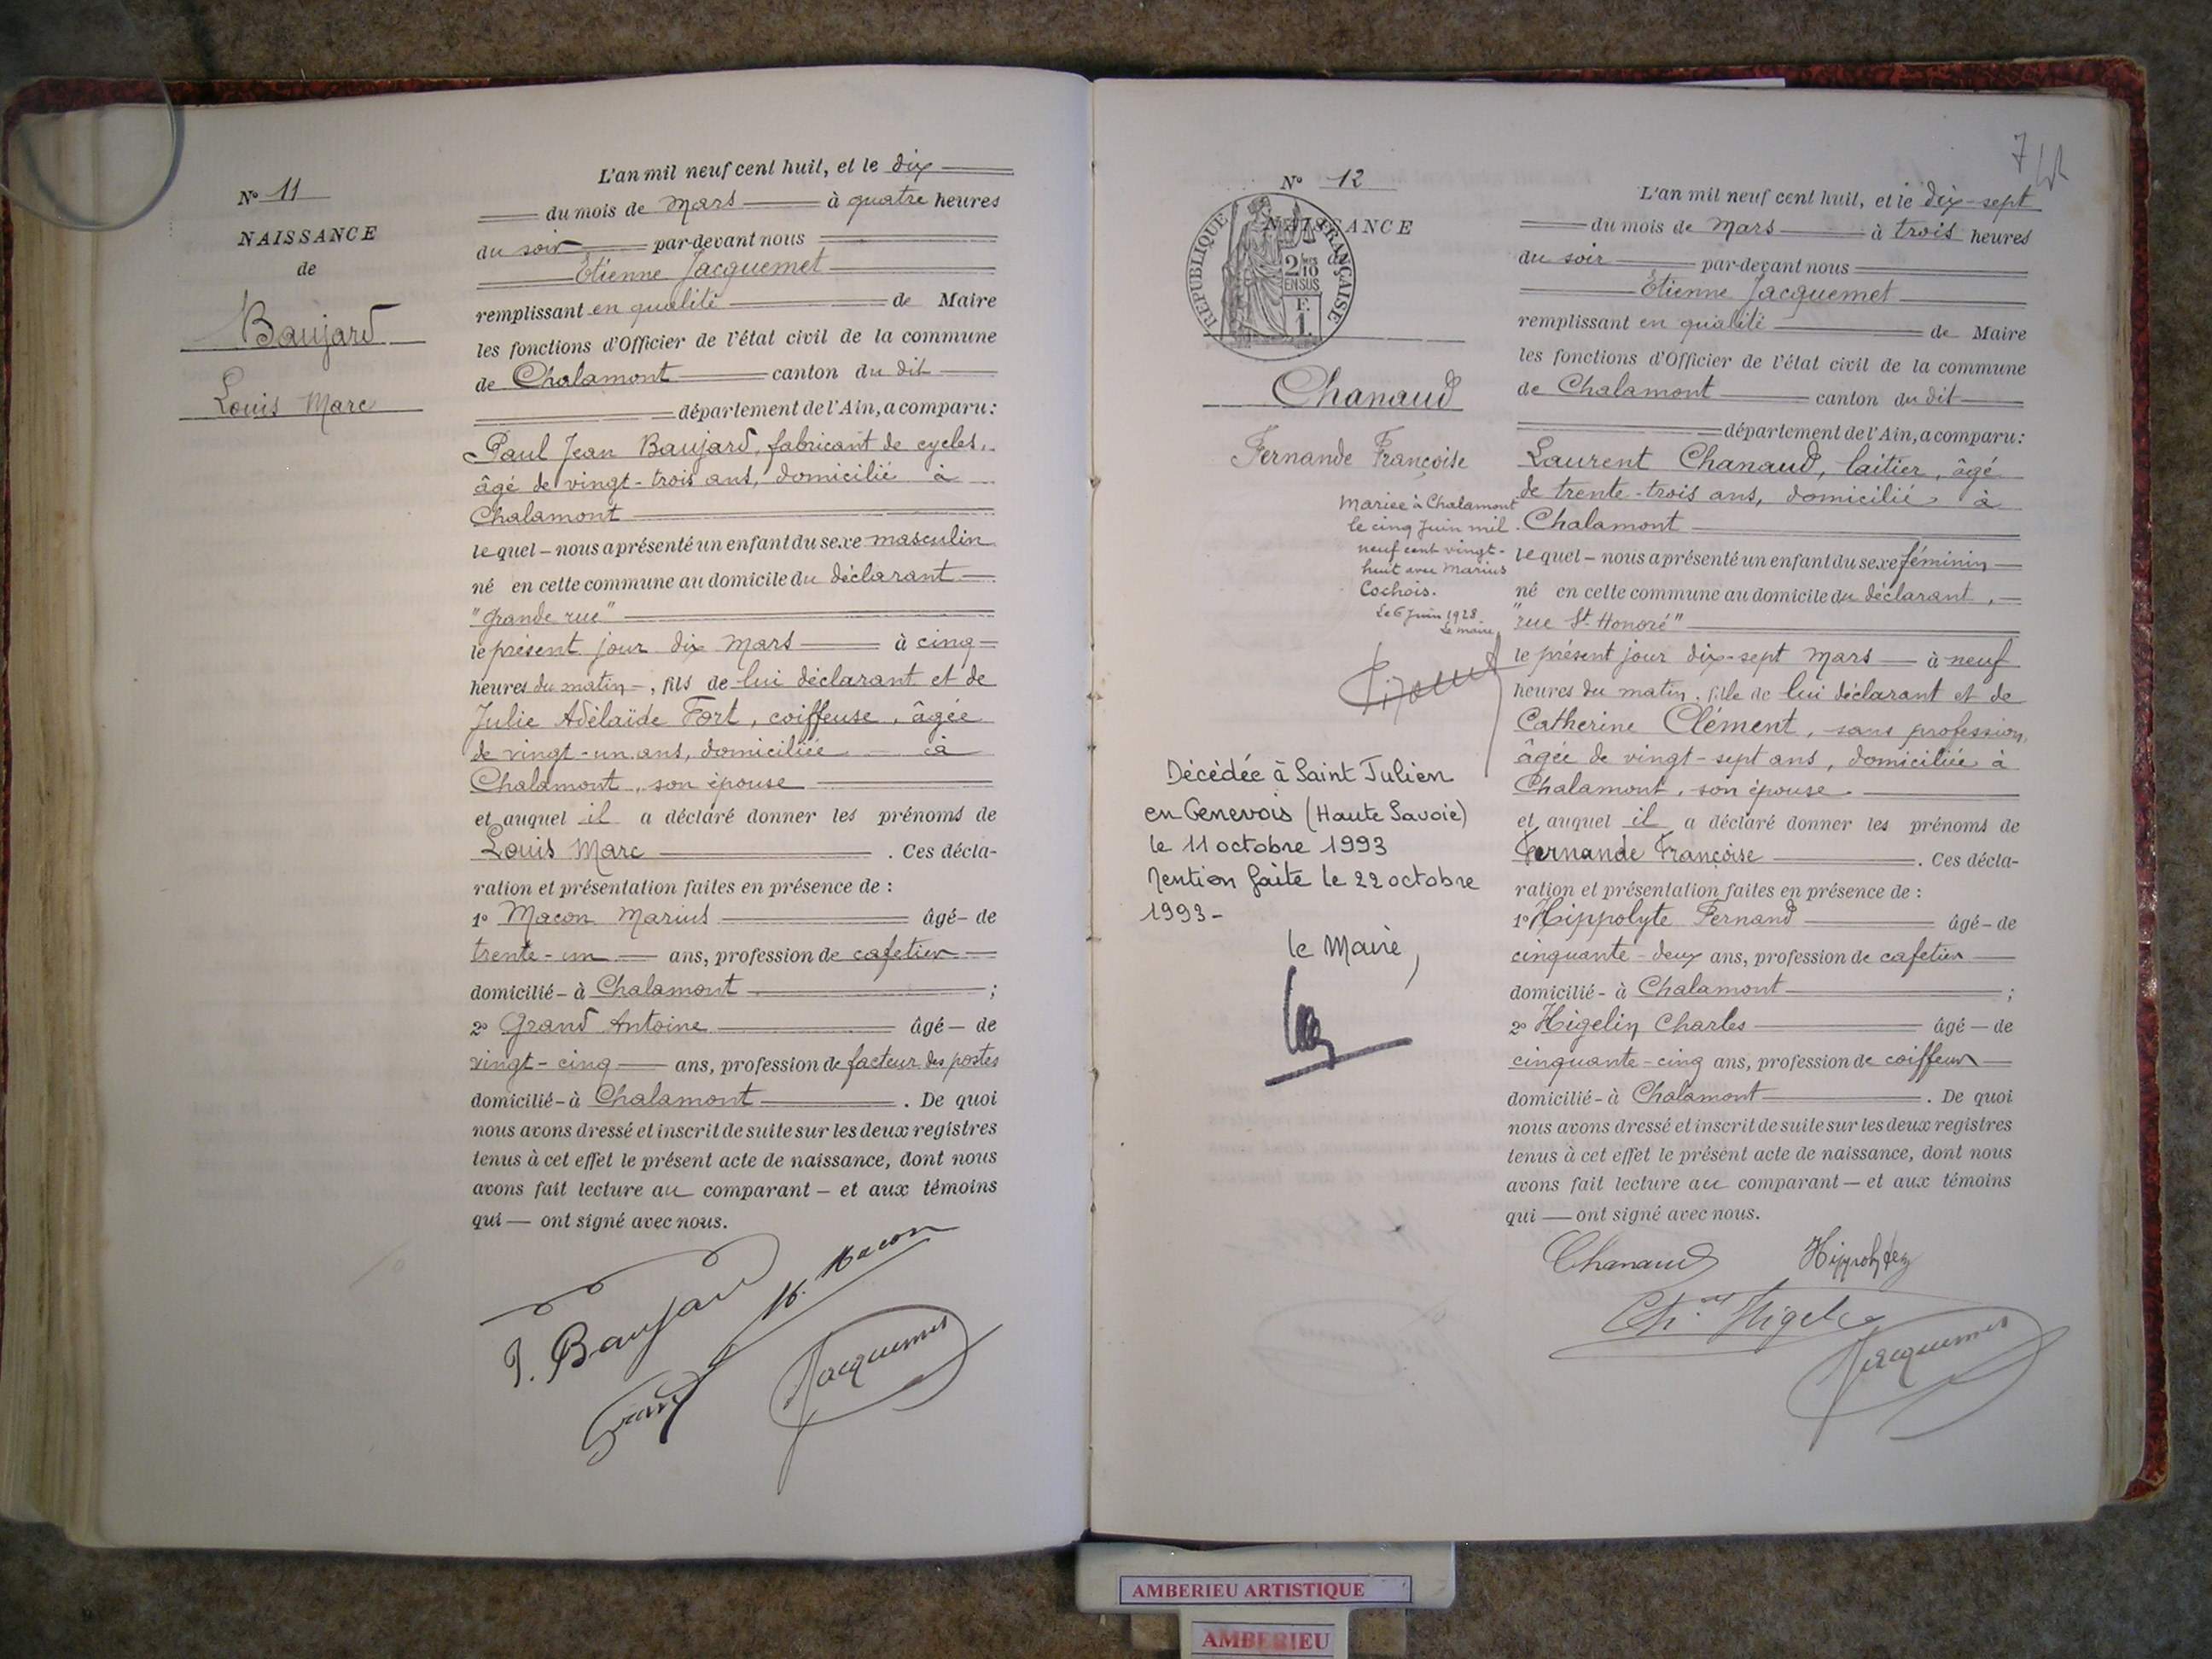 N° 11
NAISSANCE
de
Baujard
Louis Marc
L'an mil neuf cent huit, et le dix
du mois de Mars à quatre heures
du soir par-devant nous
Etienne Jacquemet
remplissant en qualité de Maire
les fonctions d'Officier de l'état civil de la commune
de Chalamont canton du dit
département de l'Ain, a comparu :
Paul Jean Baujard, fabricant de cycles,
âgé de vingt-trois ans, domicilié à
Chalamont
lequel – nous a présenté un enfant du sexe masculin
né en cette commune au domicile du déclarant
"Grande rue"
le présent jour dix Mars à cinq
heures du matin, fils de lui déclarant et de
Julie Adélaïde Fort, coiffeuse, âgée
de vingt-un ans, domiciliée à
Chalamont, son épouse
et auquel il a déclaré donner les prénoms de
Louis Marc . Ces décla-
ration et présentation faites en présence de :
1° Macon Marius âgé – de
trente-un ans, profession de cafetier
domicilié – à Chalamont ;
2° Grand Antoine âgé – de
vingt-cinq ans, profession de facteur des postes
domicilié – à Chalamont . De quoi
nous avons dressé et inscrit de suite sur les deux registres
tenus à cet effet le présent acte de naissance, dont nous
avons fait lecture au comparant – et aux témoins
qui — ont signé avec nous.
M. Macon
J. Baujard
Grand
Jacquemet
7
N° 12
NAISSANCE
de
REPUBLIQUE FRANÇAISE
2/10
EN SUS
F.
1.
Chanaud
Fernande Françoise
Mariée à Chalamont
le cinq Juin mil
neuf cent vingt-
huit avec Marius
Cochois.
Le 6 Juin 1928
Le maire,
Décédée à Saint Julien
en Genevois (Haute Savoie)
le 11 octobre 1993
Mention faite le 22 octobre
1993 -
le Maire,
L'an mil neuf cent huit, et le dix-sept
du mois de Mars à trois heures
du soir par-devant nous
Etienne Jacquemet
remplissant en qualité de Maire
les fonctions d'Officier de l'état civil de la commune
de Chalamont canton du dit
département de l'Ain, a comparu :
Laurent Chanaud, laitier, âgé
de trente-trois ans, domicilié à
Chalamont
lequel – nous a présenté un enfant du sexe féminin
né en cette commune au domicile du déclarant,
"rue St Honoré"
le présent jour dix-sept Mars à neuf
heures du matin, fille de lui déclarant et de
Catherine Clément, sans profession,
âgée de vingt-sept ans, domiciliée à
Chalamont, son épouse.
et auquel il a déclaré donner les prénoms de
Fernande Françoise . Ces décla-
ration et présentation faites en présence de :
1° Hippolyte Fernand âgé – de
cinquante-deux ans, profession de cafetier
domicilié – à Chalamont ;
2° Higelin Charles âgé — de
cinquante-cinq ans, profession de coiffeur
domicilié – à Chalamont . De quoi
nous avons dressé et inscrit de suite sur les deux registres
tenus à cet effet le présent acte de naissance, dont nous
avons fait lecture au comparant — et aux témoins
qui — ont signé avec nous.
Chanaud
Ch. Higelin
Jacquemet
AMBERIEU ARTISTIQUE
AMBERIEU